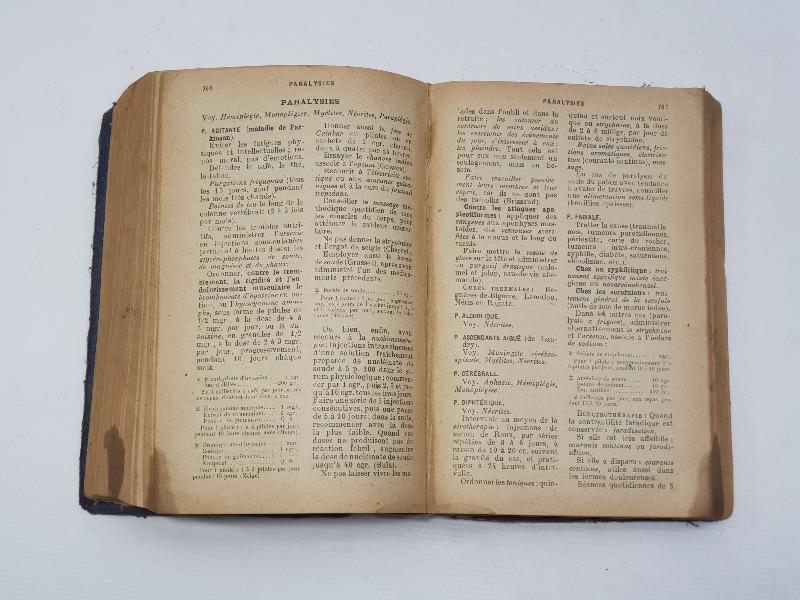 PARALYSIES
PARALYSIES
Voy. Hémiplégie, Monoplégies, Myélites, Névrites, Paraplégie.
P. AGITANTE (maladie de Par-
kinson)
Eviter les fatigues phy-
siques et intellectuelles; re-
pos moral, pas d'émotions.
Défendre le café, le thé,
le tabac.
Purgations fréquentes (tous
les 15 jours, sauf pendant
les mois très chauds).
Pointes de feu le long de la
colonne vertébrale (2 à 3 fois
par mois).
Contre les troubles nutri-
tifs, administrer l'arsenic
en injections sous-cutanées
glycérophosphates de soude,
de magnésie et de chaux.
Ordonner, contre le trem-
blement, la rigidité et l'en-
dolorissement musculaire le
bromhydrate d'hyoscine en po-
tion, ou l'hyoscyamine amor-
phe, sous forme de pilules de
1/2 mgr. à la dose de 4 à
5 mgr. par jour, ou la du-
boisine, en granules de 1/2
mgr., à la dose de 2 à 3 mgr.
par jour, progressivement,
pendant 10 jours chaque
mois.
Donner aussi la fève de
Calabar en pilules ou en
cachets de 2 cgr. chacun,
deux à quatre par 24 heures.
Essayer le chanvre indien
associé à l'opium (Gowers).
Recourir à l'électricité sta-
tique ou aux courants galva-
niques et à la cure du fauteuil
trépidant.
Conseiller le massage mé-
thodique quotidien de tous
les muscles du corps, pour
atténuer la raideur muscu-
laire.
Ne pas donner la strychnine
et l'ergot de seigle (Charcot).
Employer aussi le borate
de soude (Grasset), après avoir
administré l'un des médica-
ments précédents.
Ou bien, enfin, avoir
recours à la nucléinothéra-
pie: injections intraveineuses
d'une solution fraîchement
préparée de nucléinate de
soude à 5 p. 100 dans le sé-
rum physiologique; commen-
cer par 1 cgr., puis 2, 4 et jus-
qu'à 10 cgr. tous les trois jours.
Faire une série de 5 injections
consécutives, puis une pause
de 5 à 10 jours; dans la suite
recommencer avec la dose
la plus faible. Quand ces
doses ne produisent pas de
réaction fébrile, augmenter
la dose de nucléinate de soude
jusqu'à 40 cgr. (Buia).
Ne pas laisser vivre les ma-
PARALYSIES
767
lades dans l'oubli et dans la
retraite; les entourer au
contraire de soins assidus;
les entretenir des événements
du jour, s'intéresser à eux;
les plaindre. Tout cela est
pour eux non seulement un
soulagement, mais un be-
soin.
Faire travailler passive-
ment leurs membres et leur
esprit, car ils ne sont pas
des ramollis (Brissaud).
Contre les attaques apo-
plectiformes: appliquer des
sangsues aux apophyses mas-
toïdes, des ventouses scari-
fiées à la nuque et le long du
rachis.
Faire mettre la vessie de
glace sur la tête et administrer
un purgatif drastique (calo-
mel et jalap, eau-de-vie alle-
mande).
CURES THERMALES: Ba-
gnères-de-Bigorre, Lamalou,
Néris ou Ragatz.
P. ALCOOLIQUE.
Voy. Névrites.
P. ASCENDANTE AIGUË (de Lan-
dry).
Voy. Méningite cérébro-
spinale, Myélites, Névrites.
P. CÉRÉBRALE.
Voy. Aphasie, Hémiplégie,
Monoplégies.
P. DIPHTÉRIQUE.
Voy. Névrites.
Intervenir au moyen de la
sérothérapie: injections de
sérum de Roux, par séries
répétées de 3 à 5 jours, à
raison de 10 à 20 cc. suivant
la gravité du cas, et prati-
quées à 24 heures d'inter-
valle.
Ordonner les toniques: quin-
quina et surtout noix vomi-
que ou strychnine, à la dose
de 2 à 6 milligr. par jour de
sulfate de strychnine.
Bains salés quotidiens, fric-
tions aromatiques, électrisa-
tion (courants continus), mas-
sage.
En cas de paralysie du
voile du palais avec tendance
à avaler de travers, conseiller
une alimentation semi-liquide
(bouillies épaisses).
P. FACIALE.
Traiter la cause (traumatis-
mes, tumeurs parotidiennes,
périostite, carie du rocher,
tumeurs intra-craniennes,
syphilis, diabète, saturnisme,
alcoolisme, etc.).
Chez un syphilitique: trai-
tement spécifique mixte éner-
gique ou novarsénobenzol.
Chez les scrofuleux: trai-
tement général de la scrofule
(huile de foie de morue iodée).
Dans les autres cas (para-
lysie a frigore), administrer
alternativement la strychnine
et l'arsenic, associé à l'iodure
de sodium:
ELECTROTHÉRAPIE: Quand
la contractilité faradique est
conservée: faradisation.
Si elle est très affaiblie:
courants continus ou faradi-
sation.
Si elle a disparu: courants
continus, utiles aussi dans
les formes douloureuses.
Séances quotidiennes de 5